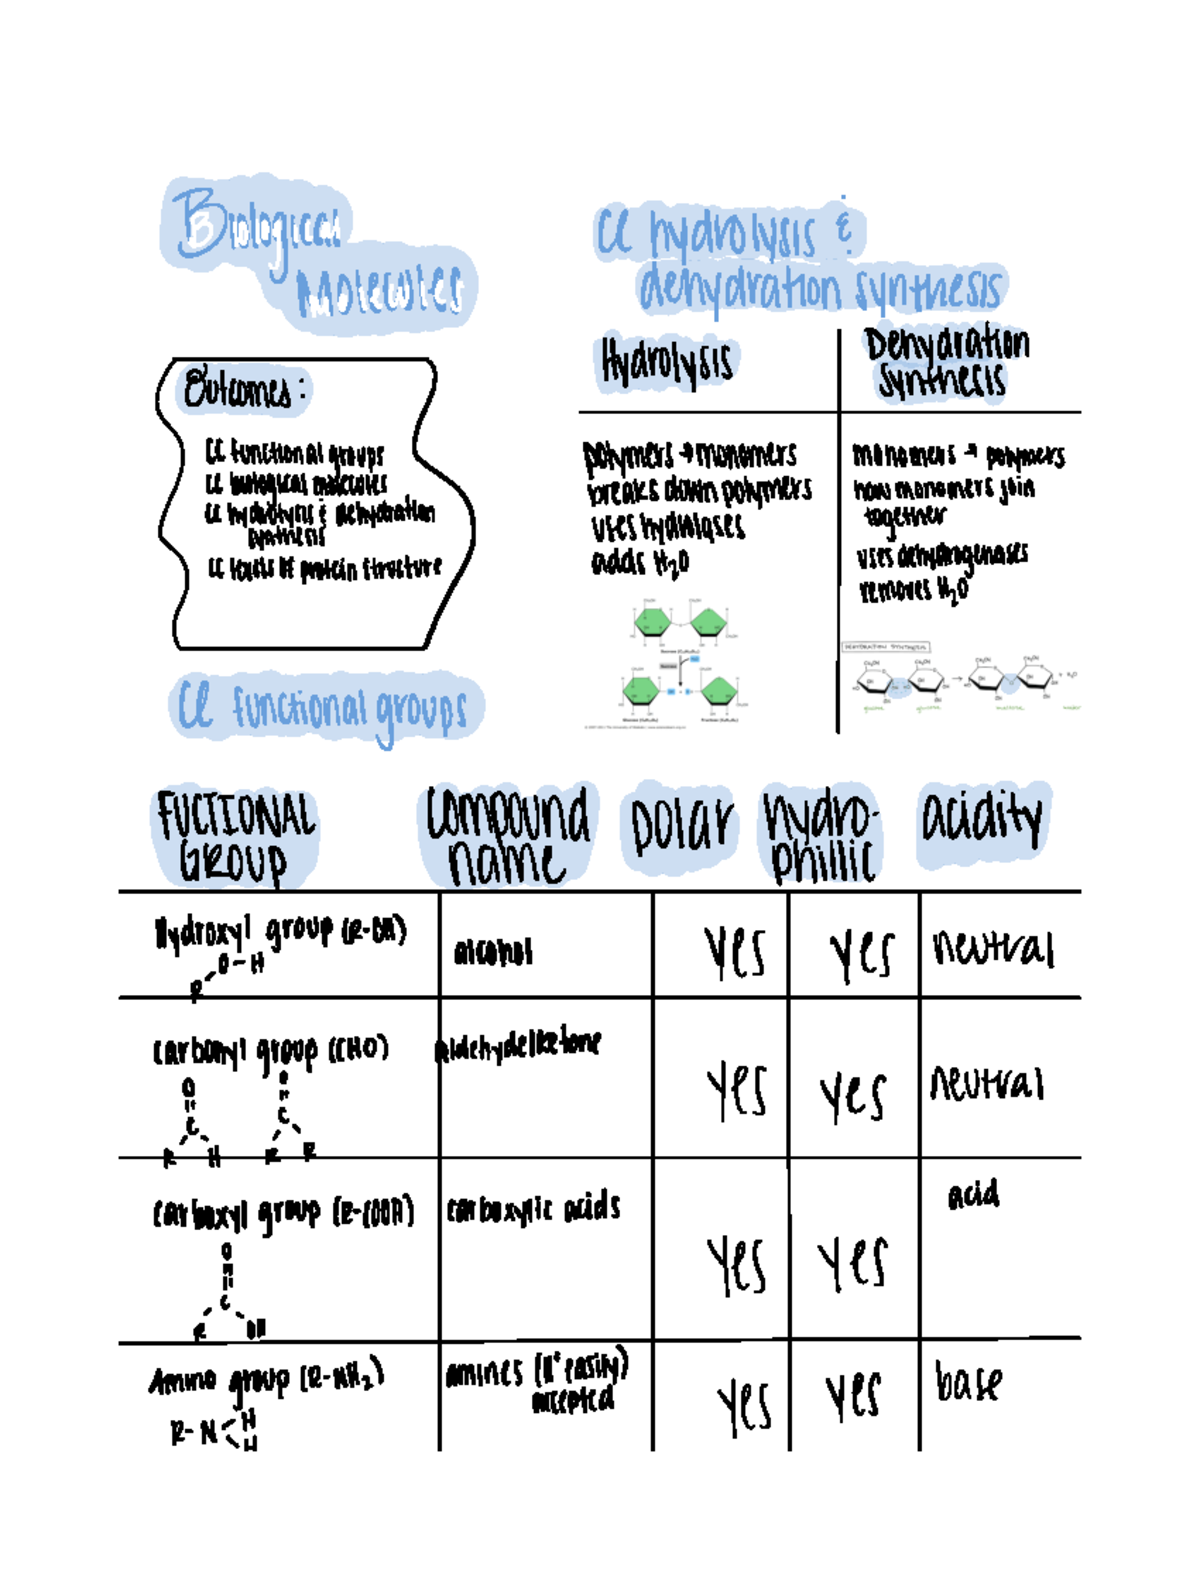 Biological
Molecules
Outcomes:
CC functional groups
CC biological molecules
CC hydrolysis & dehydration
synthesis
CC levels of protein structure
CC hydrolysis &
dehydration synthesis
Hydrolysis
polymers → monomers
breaks down polymers
uses hydrolases
adds H₂O
Dehydration
synthesis
monomers → polymers
how monomers join
together
uses dehydrogenases
removes H₂O
DEHYDRATION SYNTHESIS
CC functional groups
FUCTIONAL
GROUP
compound
name
polar
hydro-
phillic
acidity
Hydroxyl group (R-OH)
O-H
R
alcohol
yes
yes
neutral
carbonyl group (CHO)
O O
C C
R H R R
aldehyde/ketone
yes
yes
neutral
carboxyl group (R-COOH)
O
C
R OH
carboxylic acids
yes
yes
acid
Amino group (R-NH₂)
R-N H
H
amines (H⁺ easily)
accepted
yes
yes
base